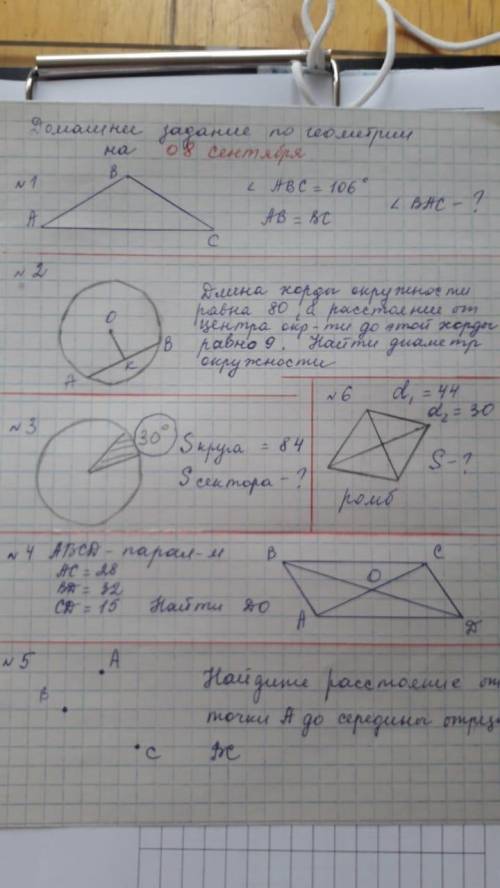 Домашнее задание по геометрии
на 08 сентября
№1
B
A
C
∠ ABC = 106°
AB = BC
∠ BAC - ?
№2
O
B
K
A
Длина хорды окружности
равна 80, а расстояние от
центра окр-ти до этой хорды
равно 9. Найти диаметр
окружности
№3
30°
S круга = 84
S сектора - ?
№6
d₁ = 44
d₂ = 30
S - ?
ромб
№4 ABCD - парал-м
AC = 28
BD = 32
CD = 15 Найти DO
B
C
O
A
D
№5
A
B
C
Найдите расстояние от
точки A до середины
BC